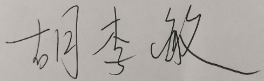 胡李敏